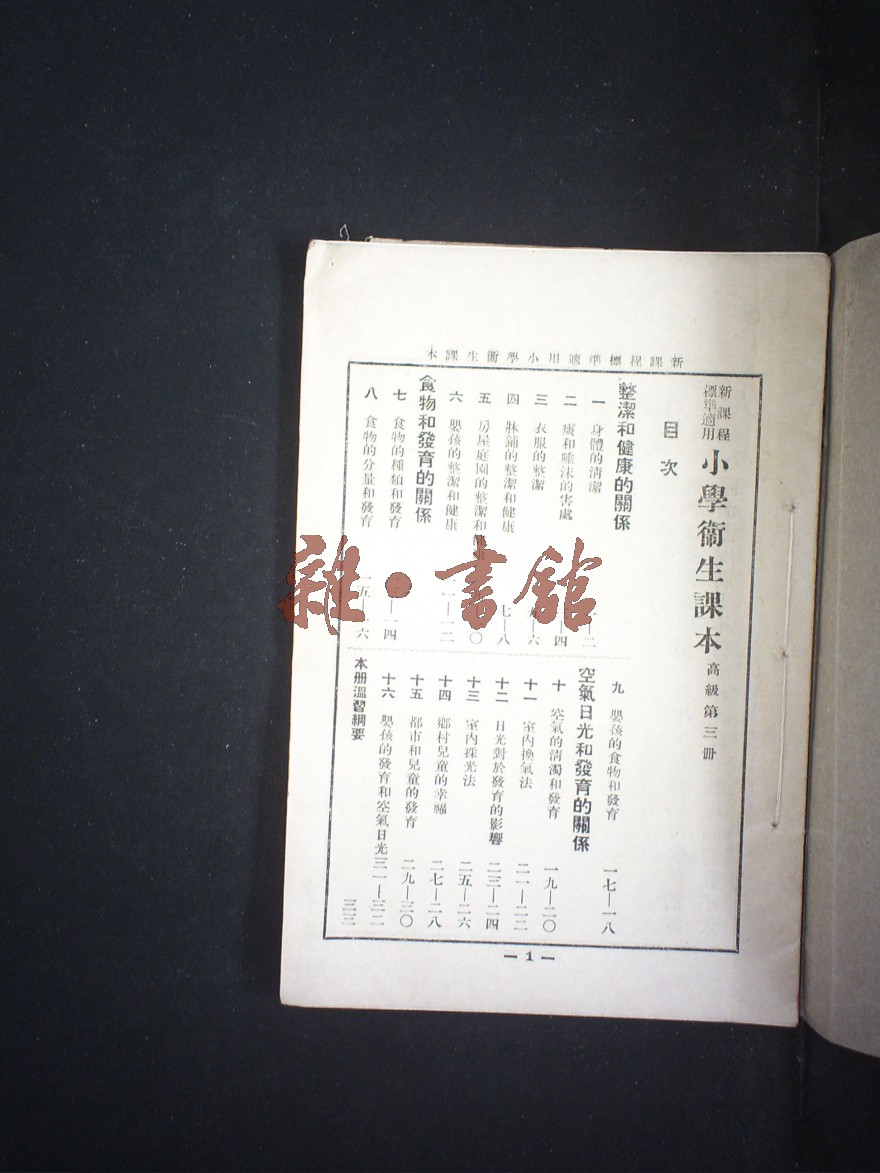 新課程標準適用小學衞生課本
新課程
標準適用
小學衞生課本 高級第三冊
目次
整潔和健康的關係
一 身體的清潔 一—二
二 痰和唾沫的害處 三—四
三 衣服的整潔 五—六
四 牀鋪的整潔和健康 七—八
五 房屋庭園的整潔和健康 〇
六 嬰孩的整潔和健康 一一—一二
食物和發育的關係
七 食物的種類和發育 一四
八 食物的分量和發育 一五—一六
九 嬰孩的食物和發育 一七—一八
空氣日光和發育的關係
十 空氣的清濁和發育 一九—二〇
十一 室內換氣法 二一—二二
十二 日光對於發育的影響 二三—二四
十三 室內採光法 二五—二六
十四 鄉村兒童的幸福 二七—二八
十五 都市和兒童的發育 二九—三〇
十六 嬰孩的發育和空氣日光 三一—三二
本册溫習綱要 三三
— 1 —
雜·書館